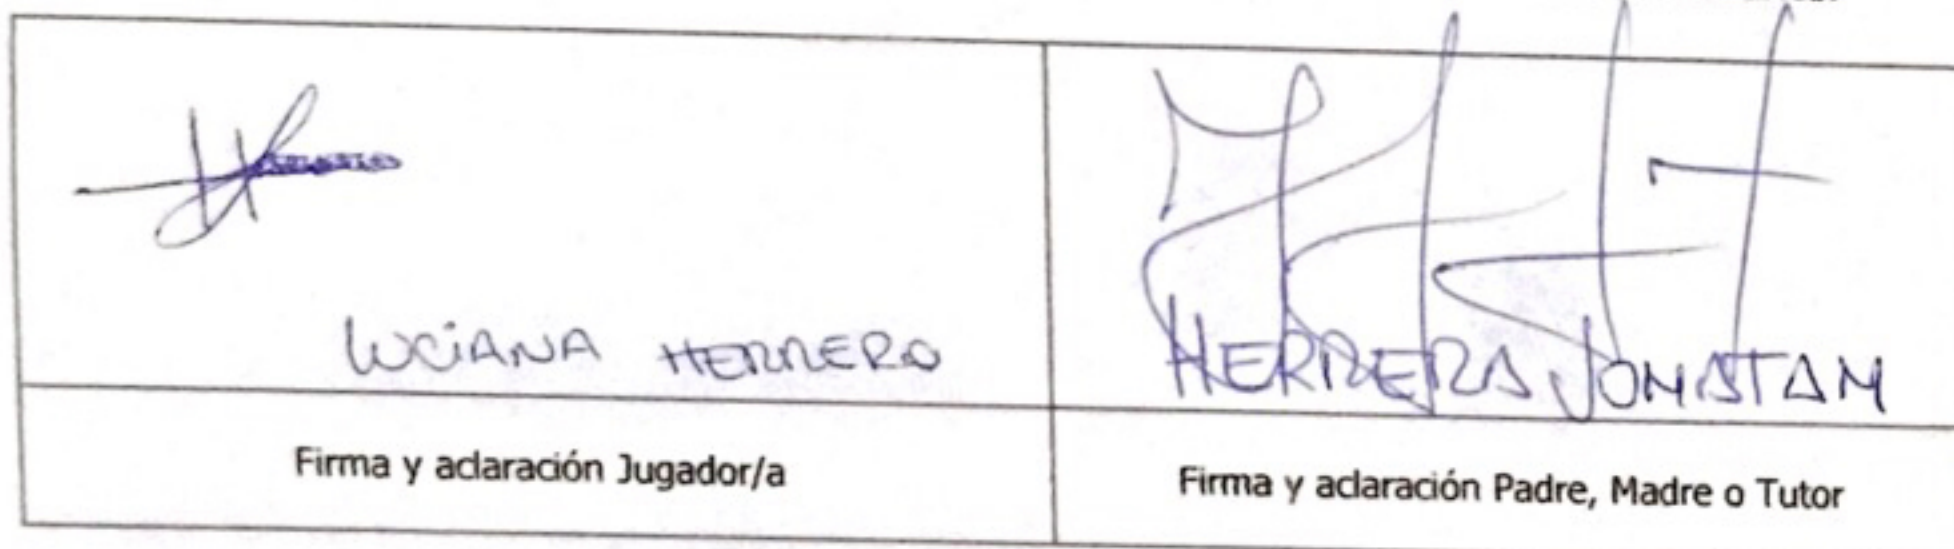 LUCIANA HERRERO
HERRERA JONATAN
Firma y aclaración Jugador/a
Firma y aclaración Padre, Madre o Tutor